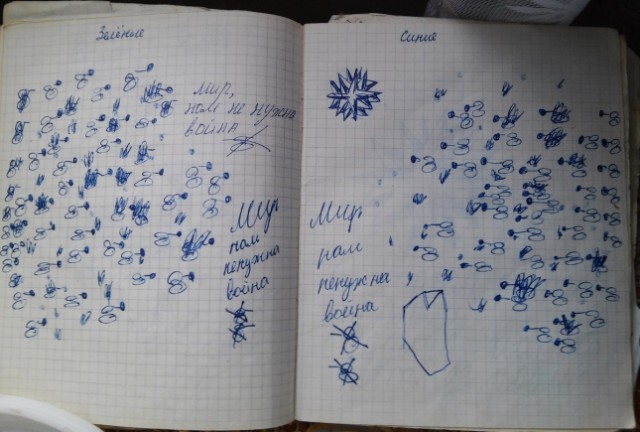 Зелёные
мир,
нам не нужна
война
Мир
нам
ненужна
война
Синие
Мир
нам
ненужна
война